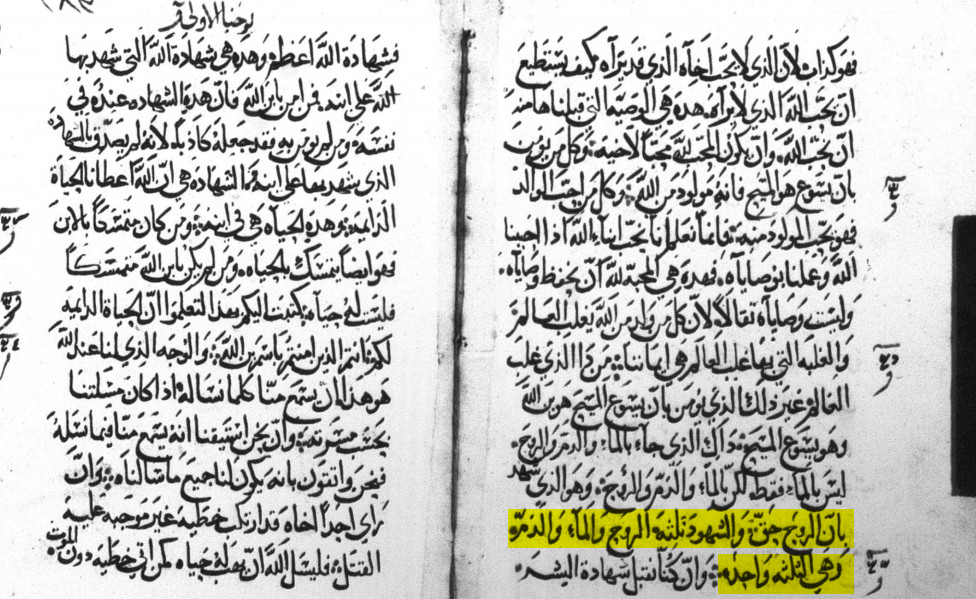 فهو كذاب لان الذي لا يحب اخاه الذي قد يراه كيف يستطيع
ان يحب الله الذي لا يراه هذه هي الوصيه التي قبلناها منه
ان يحب الله وان يكون المحب لله محبًا لاخيه وكل من يومن
بان يسوع هو المسيح فانه مولود من الله وكل من احب الوالد
فهو يحب المولود منه فانما نعلم انا نحب ابناء الله اذا احببنا
الله وعملنا بوصاياه فهذه هي المحبة لله ان نحفظ وصاياه
وليست وصاياه ثقالا لان كل من ولد من الله يغلب العالم
والغلبه التي بها غلب العالم هي ايماننا من ذا الذي غلب
العالم غير ذلك الذي يومن بان يسوع المسيح هو بن الله
وهو يسوع المسيح ذاك الذي جاء بالماء والدم والروح
ليس بالماء فقط لكن بالماء والدم والروح وهو الذي شهد
بان الروح حق والشهود ثلثه الروح والماء والدم
وهي الثلثه واحده وان كنا نقبل شهادة البشر
يوحنا الاولى
فشهادة الله اعظم وهذه هي شهادة الله التي شهد بها
الله على ابنه فمن امن بابن الله فان هذه الشهاده عنده في
نفسه ومن لم يومن به فقد جعله كاذبا لانه لم يصدق بالشهاده
الذي شهد بها على ابنه الشهاده هي ان الله اعطانا الحياة
الدايمه وهذه الحياه هي في ابنه ومن كان متمسكًا بالابن
فهو ايضًا يتمسك بالحياه ومن لم يكن بابن الله متمسكًا
فليست له حياه كتبت اليكم بهذا لتعلموا ان الحياة الدايمه
لكم انتم الذين امنتم باسم بن الله والوجه الذي لنا عند الله
هو هذا ان يستمع منا كلما نساله اذا كان مسلتنا
بحسب مسرته وان نحن استيقنا انه يستمع منا فيما نسله
فنحن واثقون بانه يكون لنا جميع ما سالناه وان
راى احدًا اخاه قد ارتكب خطية غير موجبه عليه
القتل فليسل الله ان يهب له حياه لمن اتى خطيه دون الموت